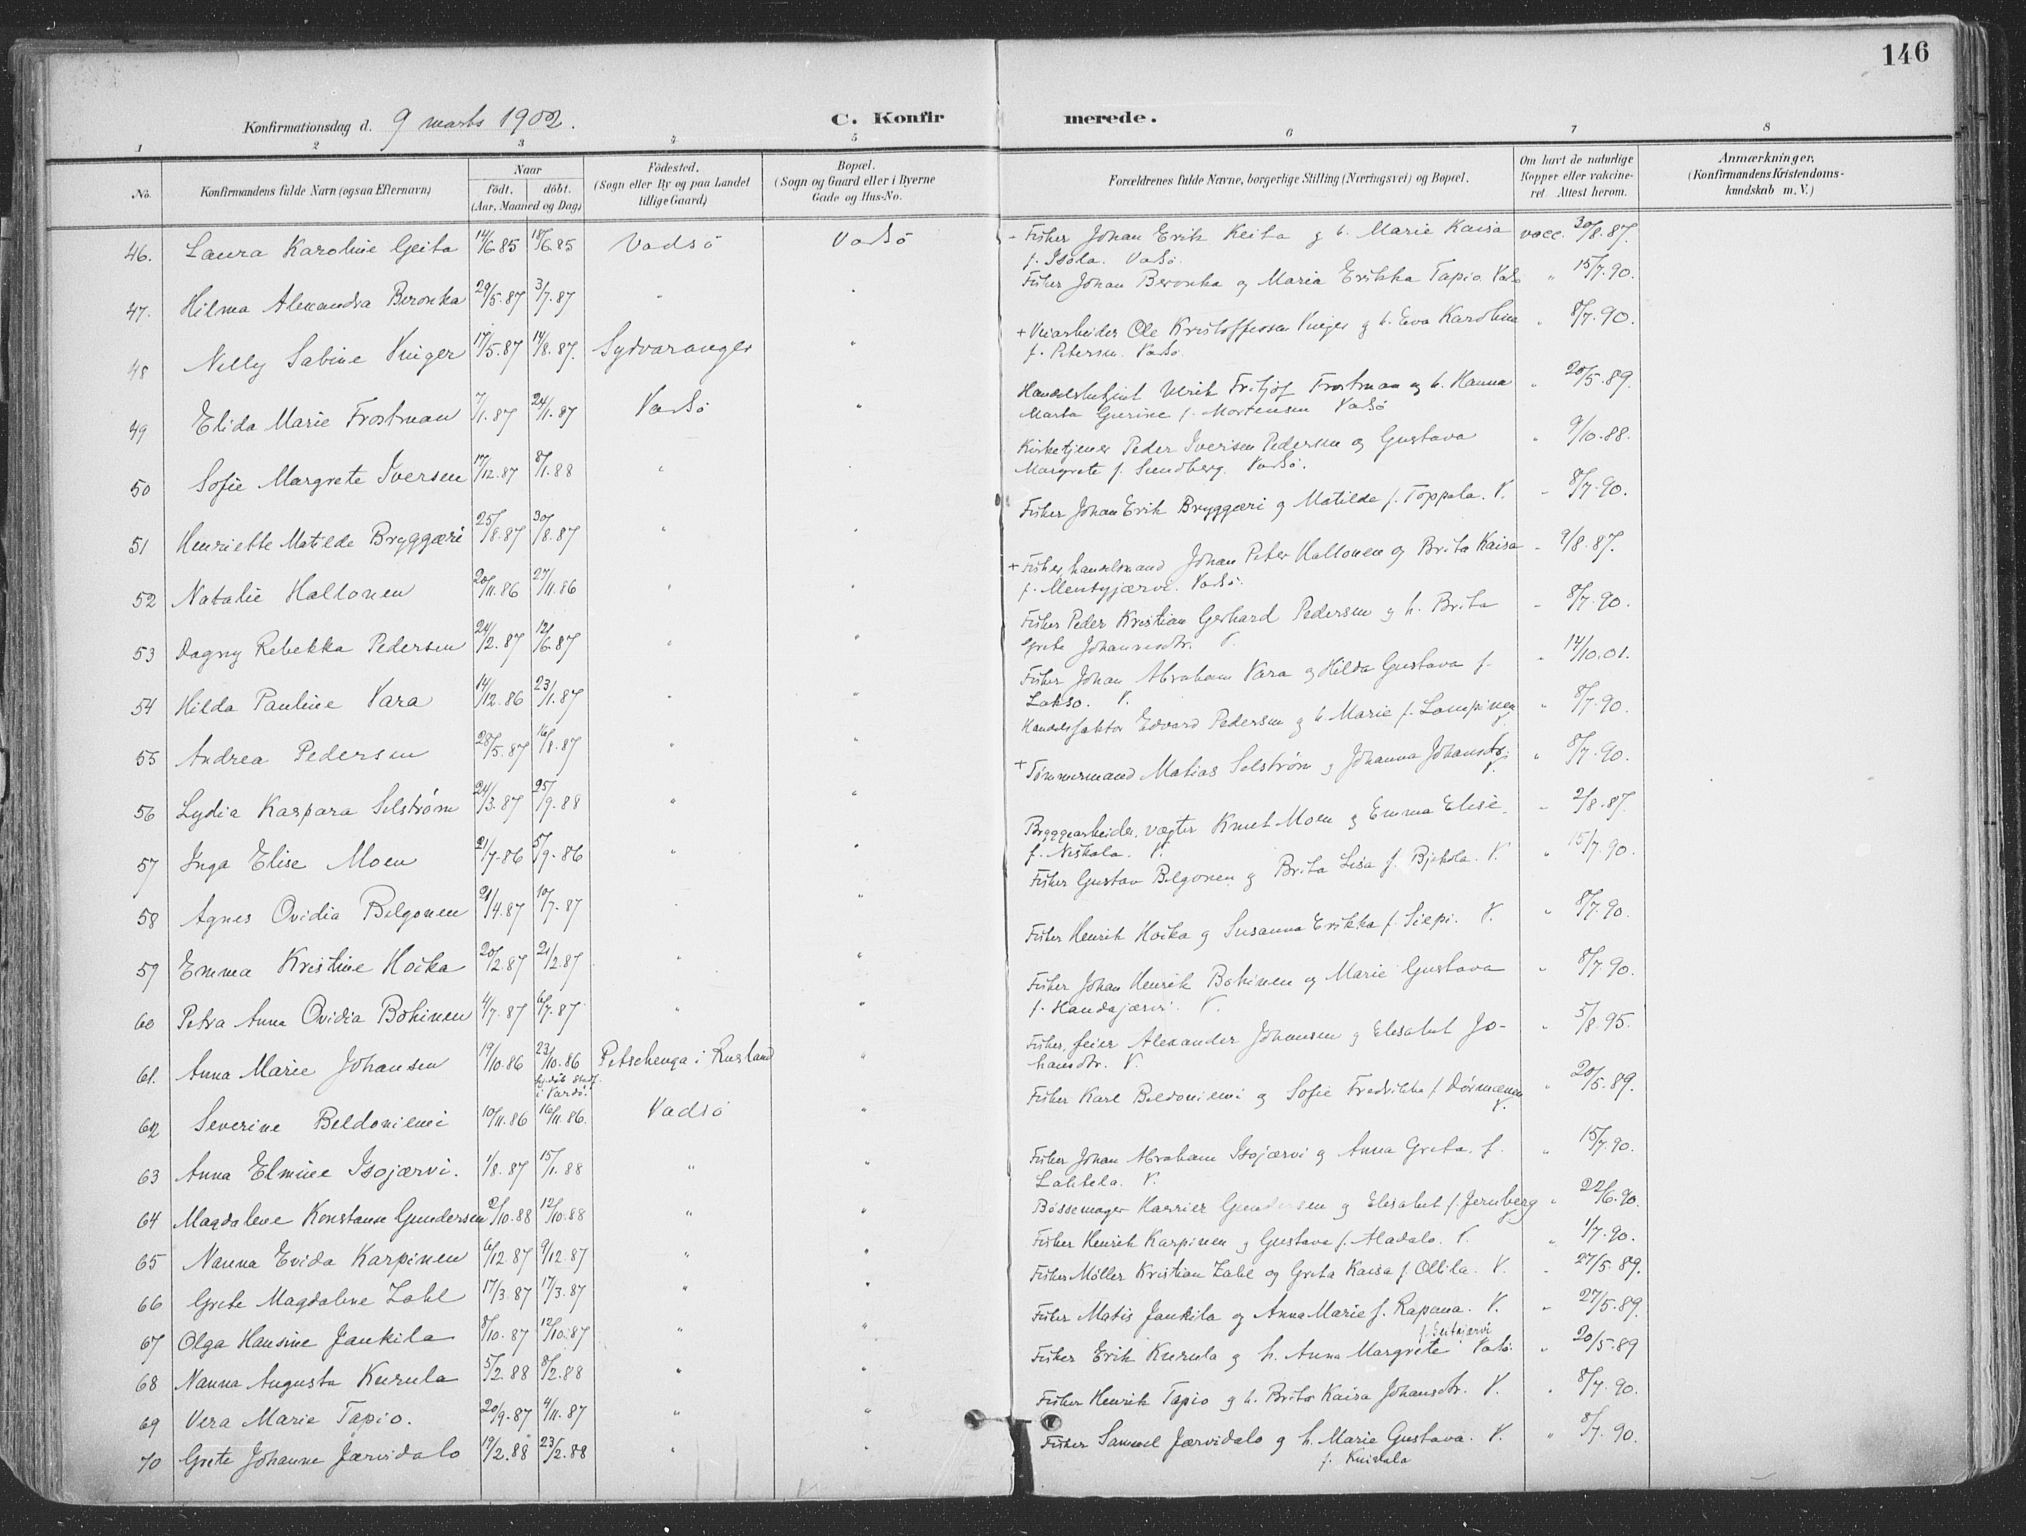 146
Konfirmationsdag d. 9 marts 1902. C. Konfirmerede.
1 2 3 4 5 6 7 8
No. Konfirmandens fulde Navn (ogsaa Efternavn) Naar født. døbt. (Aar, Maaned og Dag) Fødested. (Sogn eller By og paa Landet tillige Gaard) Bopæl. (Sogn og Gaard eller i Byerne Gade og Hus-No. Forældrenes fulde Navne, borgerlige Stilling (Næringsvei) og Bopæl. Om havt de naturlige Kopper eller vakcineret. Attest herom. Anmærkninger, (Konfirmandens Kristendomskundskab m. V.)
46. Laura Karoline Geita 14/6.85 18/6.85 Vadsö Vadsö - Fisker Johan Erik Keita g h. Marie Kaisa vacc. 30/8.87.
f. Isola. Vadsö.
47. Hilma Alexandra Beronka 29/5.87 3/7.87 " " Fisker Johan Beronka og Maria Erikka Tapio Vadsö " 15/7.90.
48 Nelly Sabine Vinger 17/5.87 14/8.87. Sydvaranger " + Veiarbeider Ole Kristoffersen Vinger g h. Eva Karolina " 8/7.90.
f. Petersen. Vadsö.
49 Elida Marie Frostman 7/1.87 24/1.87 Vadsö " Handelsbetjent Ulrik Fritjof Frostman og h. Hanna " 20/5.89.
Marta Gurine f. Mortensen Vadsö
50 Sofie Margrete Iversen 17/12.87 8/1.88 " . Kirketjener Peder Iversen Pedersen og Gustava " 9/10.88.
Margrete f. Sundberg. Vadsö.
51 Henriette Matilde Bryggæri 25/8.87 30/8.87 " " Fisker Johan Erik Bryggæri og Matilde f. Toppela. V. " 8/7.90.
52 Natalie Hallonen 20/11.86 27/11.86 " " + Fisker, handelsmand Johan Peter Hallonen og Brita Kaisa " 9/8.87.
f. Mentyjærvi. Vadsö.
53 Dagny Rebekka Pedersen 24/2.87 12/6.87 " " Fisker Peder Kristian Gerhard Pedersen g h. Brita " 8/7.90.
Grete Johannesdtr. V.
54 Hilda Pauline Vara 14/12.86 23/1.87 " " Fisker Johan Abraham Vara og Hilda Gustava f. " 14/10.01.
Lakso. V.
55 Andrea Pedersen 28/5.87 16/8.87 " " Handelsfaktor Edvard Pedersen g h. Marie f. Lampinen " 8/7.90.
56 Lydia Kaspara Selström 24/3.87 25/9.88 " " + Tømmermand Matias Selstrøm g Johanna Johansdtr. V. " 8/7.90.
57 Inga Elise Moen 21/7.86 5/9.86 " " Bryggearbeider, vægter Knut Moen g Emma Elise " 2/8.87.
f. Niskala. V.
58 Agnes Ovidia Belgonen 21/4.87 10/7.87 . " Fisker Gustav Belgonen g Brita Lisa f. Bjekola. V. " 15/7.90.
59 Emma Kristine Hoika 20/2.87 21/2.87 " " Fisker Henrik Hoika g Susanna Erikka f. Siepi. V. " 8/7.90.
60 Petra Anna Ovidia Bohinen 4/7.87 6/7.87 " " Fisker Johan Henrik Bohinen og Marie Gustava " 8/7.90.
f. Handajærvi. V.
61. Anna Marie Johansen 19/10.86 23/10.86 Petschenga i Rusland " Fisker, feier Alexander Johansen g Elisabet Jo- " 5/8.95.
i Vardö. hansdtr. V.
62 Severine Beldoniemi 10/11.86 16/11.86. Vadsö " Fisker Karl Beldoniemi og Sofie Fredrikke f. Dörmænen V. " 20/5.89.
63 Anna Elmine Isojærvi. 1/8.87 15/1.88 " " Fisker Johan Abraham Isojærvi g Anna Greta f. " 15/7.90.
Lahtela. V.
64 Magdalene Konstanse Gundersen 2/10.88 12/10.88 " " Bössemager Harrier Gundersen g Elisabet f. Jernberg " 22/6.90.
65 Nanna Evida Karpinen 6/12.87 9/12.87 " " Fisker Henrik Karpinen g Gustava f. Aladalo. V. " 1/7.90.
66 Grete Magdalene Zahl 17/3.87 17/3.87 " " Fisker Møller Kristian Zahl og Greta Kaisa f. Ollila. V. " 27/5.89.
67 Olga Hansine Jankila 8/10.87 12/10.87 " " Fisker Matis Jankila og Anna Marie f. Rapana. V. " 27/5.89.
68 Nanna Augusta Kurula 5/2.88 8/2.88 " " Fisker Erik Kurula og h. Anna Margrete Vadsö. " 20/5.89
69 Vera Marie Tapio. 20/9.87 4/11.87 " " Fisker Henrik Tapio g h. Brita Kaisa Johansdtr. V. " 8/7.90.
70 Grete Johanne Jærvidalo 19/2.88 23/2.88 " " Fisker Samuel Jærvidalo g h. Marie Gustava. V. " 8/7.90.
f. Knivala